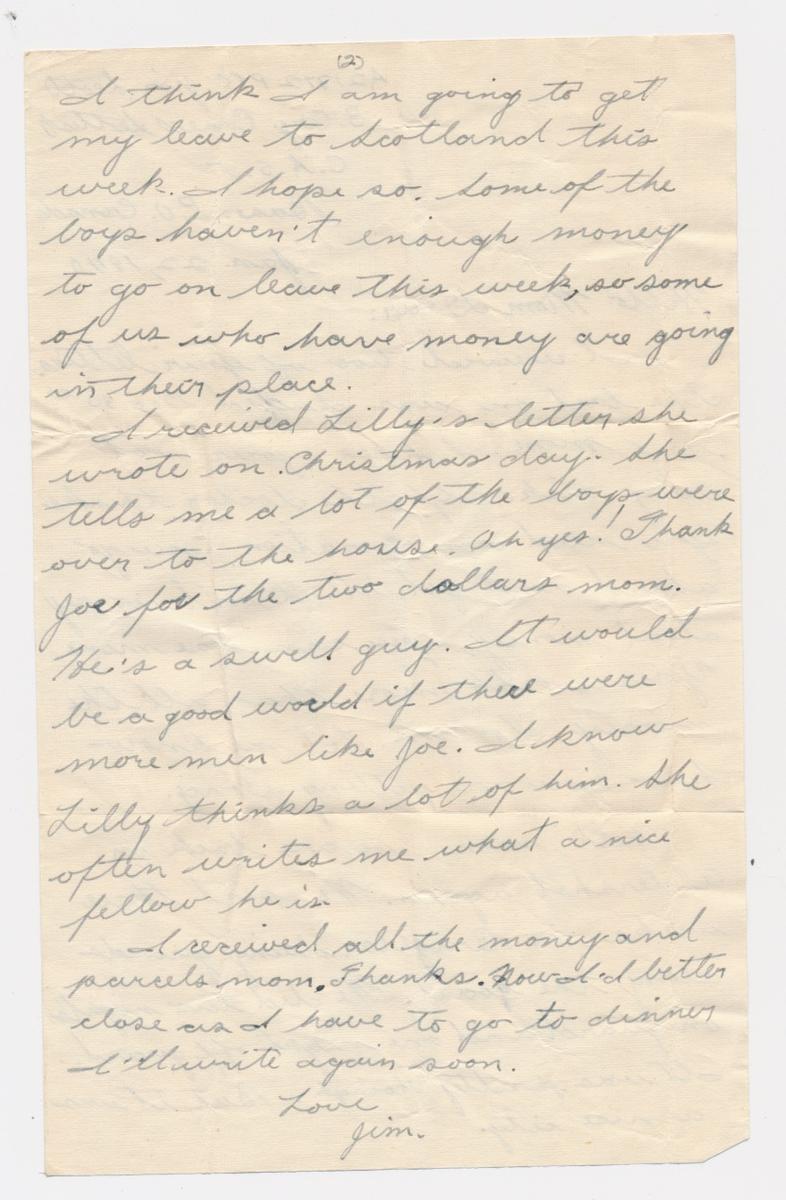 (2)
I think I am going to get
my leave to Scotland this
week. I hope so. Some of the
boys haven't enough money
to go on leave this week, so some
of us who have money are going
in their place.
I received Lilly's letter she
wrote on Christmas day. She
tells me a lot of the boys were
over to the house. Oh yes! Thank
Joe for the two dollars mom.
He's a swell guy. It would
be a good world if there were
more men like Joe. I know
Lilly thinks a lot of him. She
often writes me what a nice
fellow he is.
I received all the money and
parcels mom. Thanks. Now I'd better
close as I have to go to dinner
I'll write again soon.
Love
Jim.